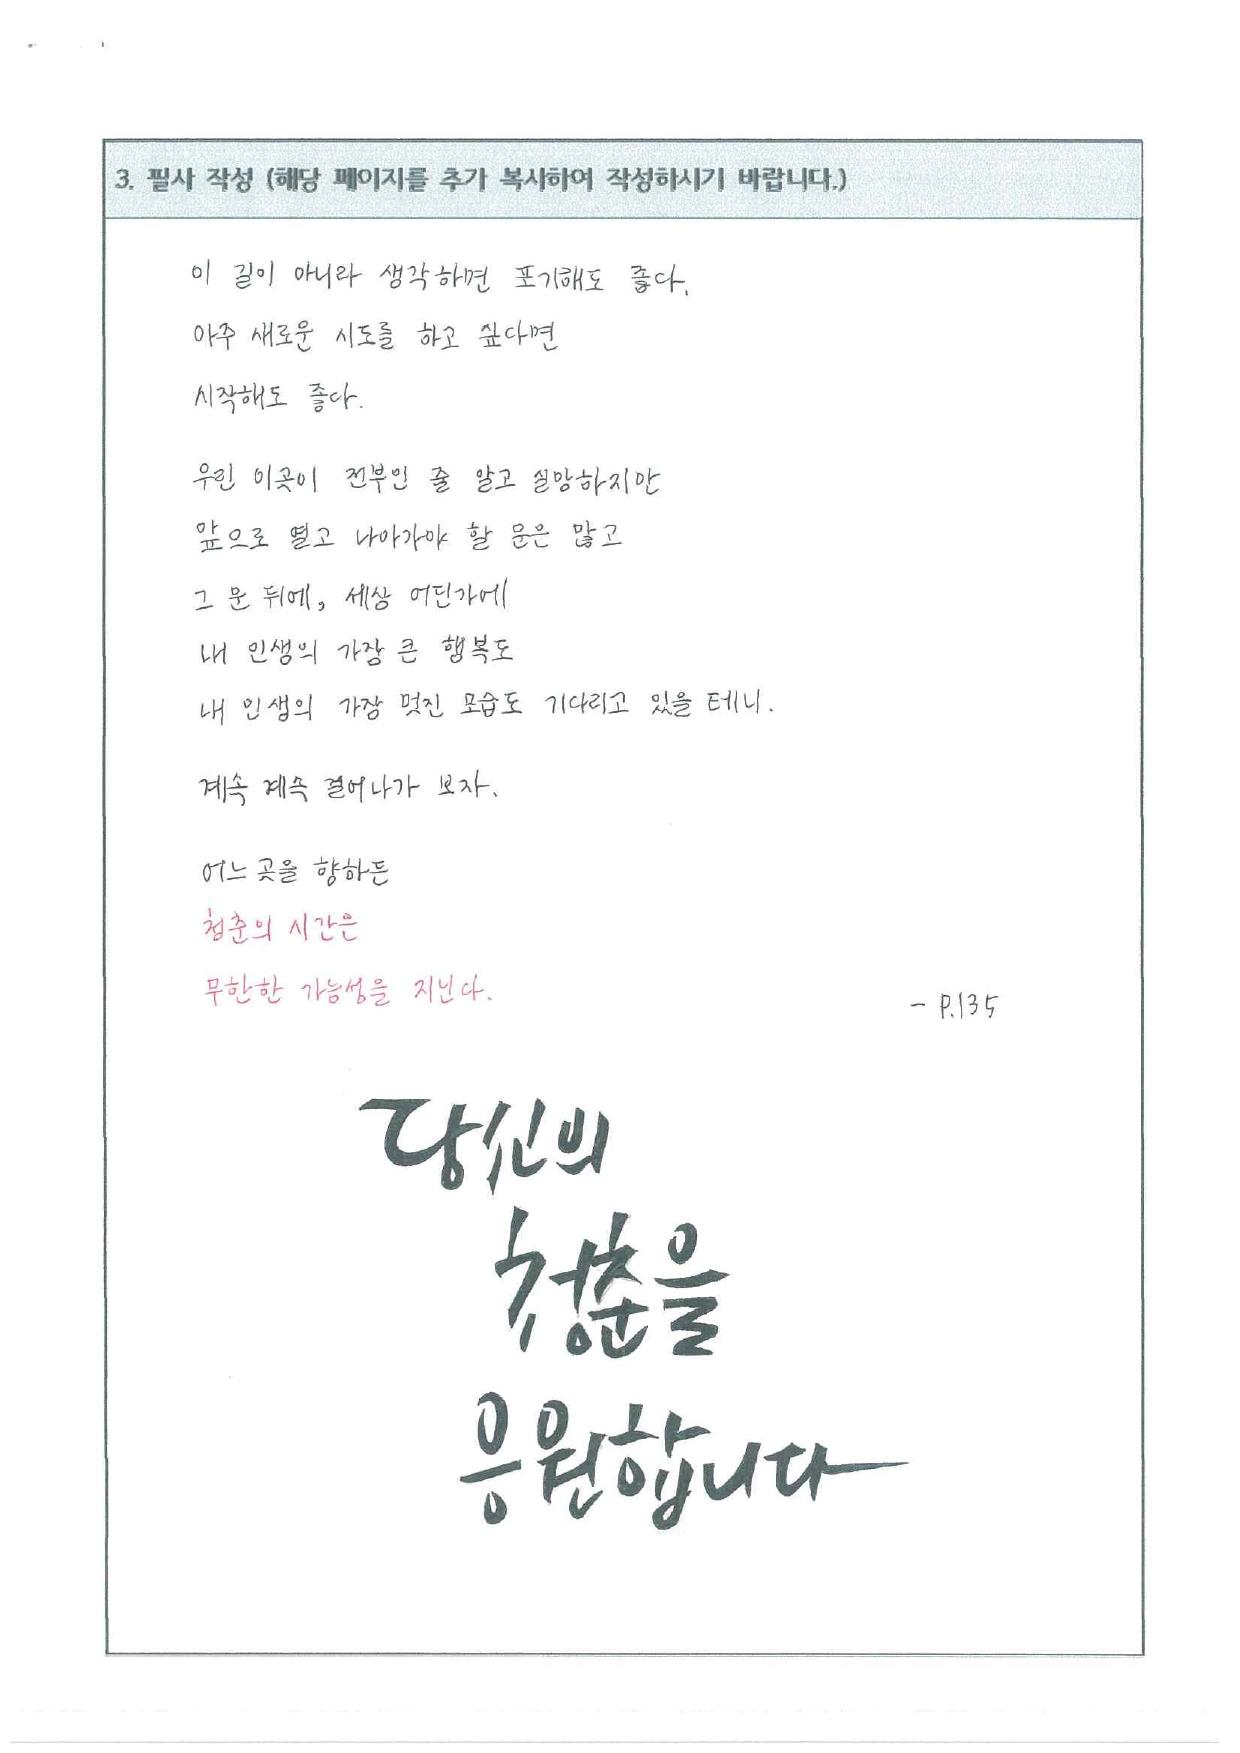 3. 필사 작성 (해당 페이지를 추가 복사하여 작성하시기 바랍니다.)
이 길이 아니라 생각하면 포기해도 좋다.
아주 새로운 시도를 하고 싶다면
시작해도 좋다.
우린 이곳이 전부인 줄 알고 실망하지만
앞으로 열고 나아가야 할 문은 많고
그 문 뒤에, 세상 어딘가에
내 인생의 가장 큰 행복도
내 인생의 가장 멋진 모습도 기다리고 있을 테니.
계속 계속 걸어나가 보자.
어느 곳을 향하든
청춘의 시간은
무한한 가능성을 지닌다.
- P.135
당신의
청춘을
응원합니다